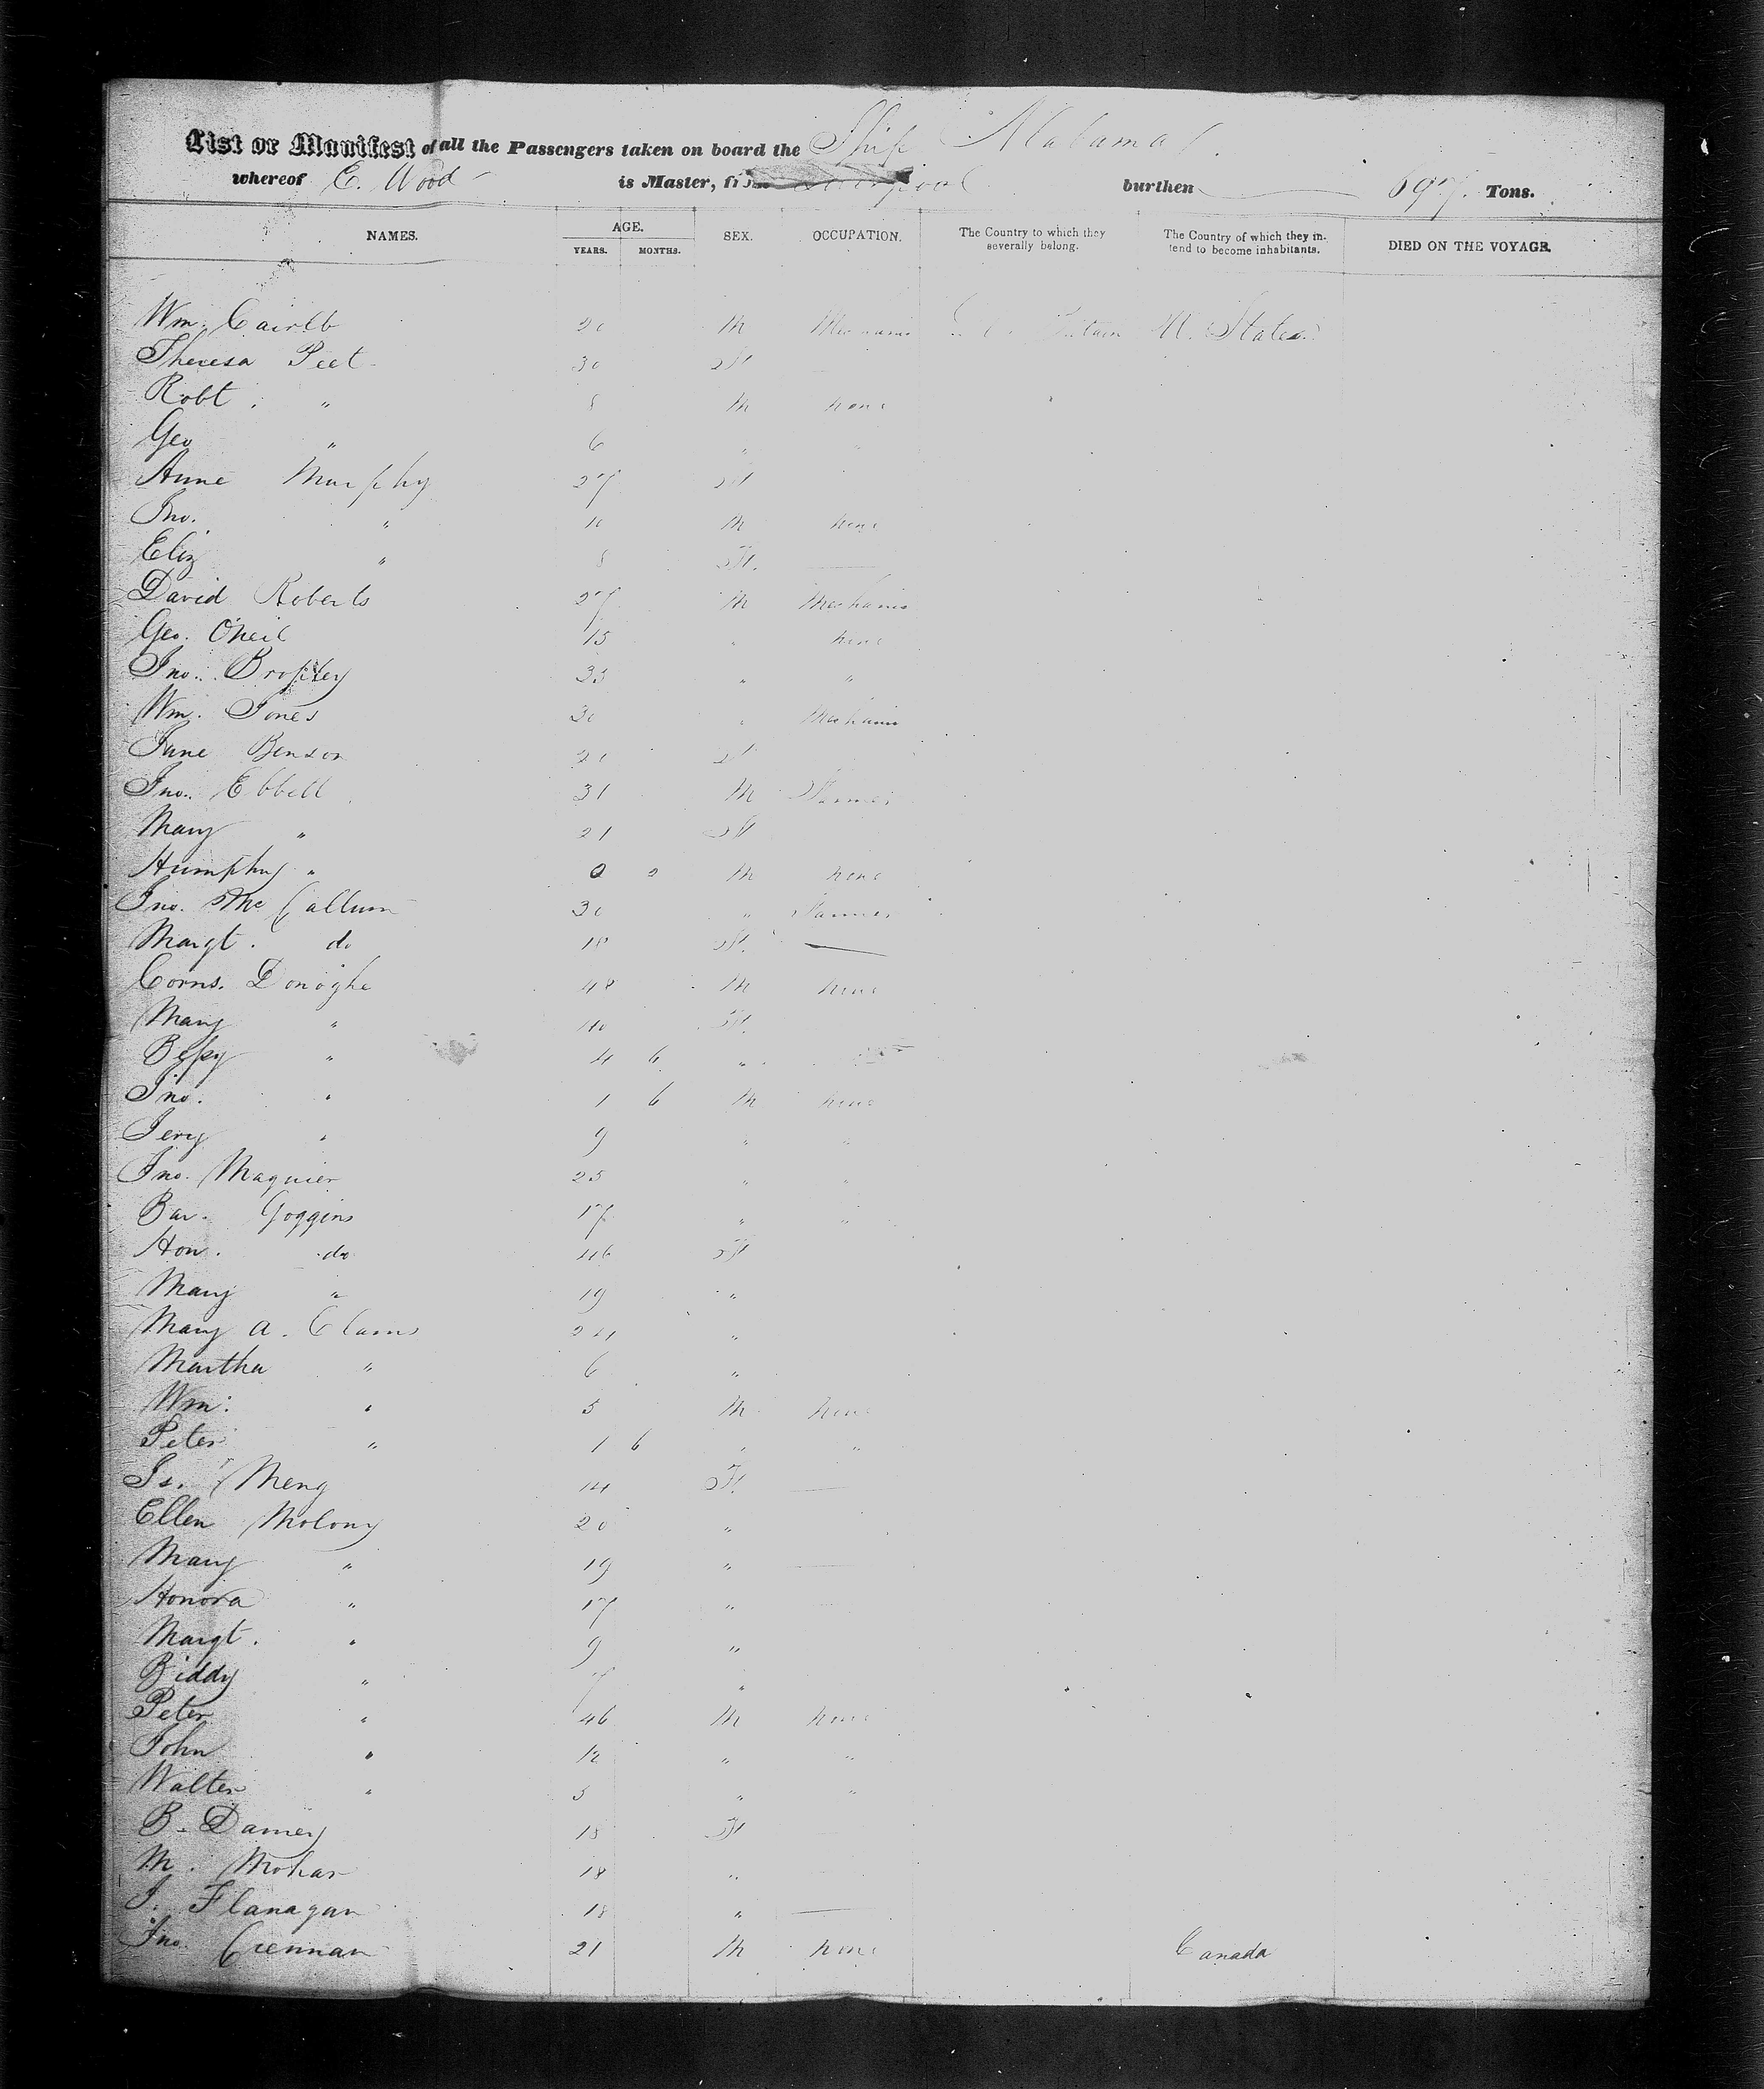 List or Manifest of all the Passengers taken on board the Ship Alabama
whereof E. Wood is Master, from Liverpool burthen 697 Tons.
NAMES. AGE. YEARS. MONTHS. SEX. OCCUPATION. The Country to which they severally belong. The Country of which they intend to become inhabitants. DIED ON THE VOYAGE.
Wm. 20 M Mechanic Britain U. States
Theresa Peet 30 F
Robt. " 8 M none
Geo " 6 " "
Anne Murphy 27 F
Jno. " 10 M none
Eliz " 8 F.
David Roberts 27 M Mechanic
Geo. O'Neil 15 " none
Jno. Brophy 33 " "
Wm. Jones 30 " Mechanic
Jane Benson 20 F
Jno. Ebbell 31 M Farmer
Mary " 21 F
Humphry " 0 2 M none
Jno. Mc Callum 30 " Farmer
Margt. do 18 F.
Corns. Donoghe 48 M none
Mary " 40 F.
Bessy " 4 6 "
Jno. " 1 6 M none
Jery " 9 " "
Jno. Maguier 25 " "
Bar. Goggins 17 " "
Hon. do 46 F
Mary " 19 "
Mary A. Clams 24 "
Martha " 6 "
Wm: " 5 M none
Peter " 1 6 " "
Is. Meng 14 F.
Ellen Molony 20 "
Mary " 19 "
Honora " 17 "
Margt. " 9 "
Biddy " 7 "
Peter " 46 M none
John " 12 " "
Walter " 5 " "
B. Damey 18 F
M. Mohar 18 "
J. Flanagan 18 "
Jno. Crennan 21 M none Canada